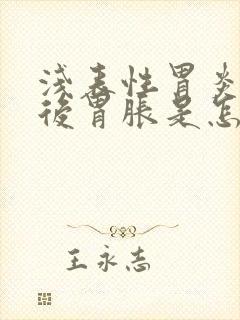 淺表性胃炎
後胃脹是怎
王永志